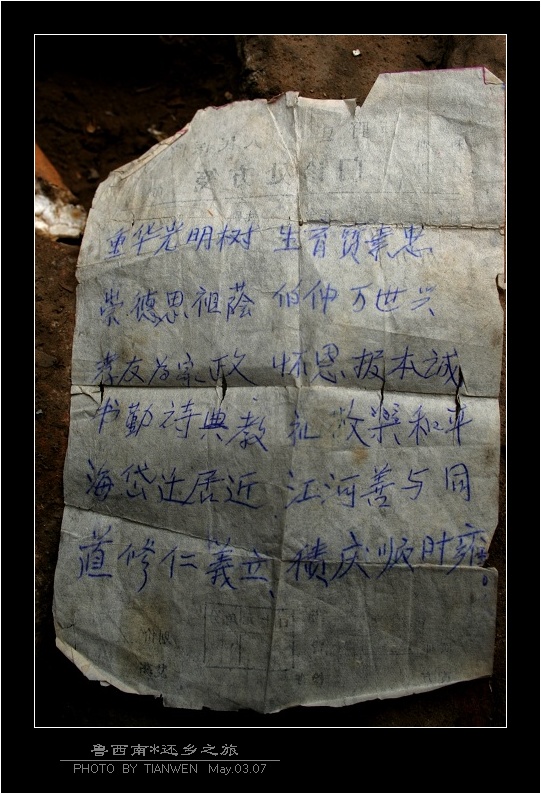 重华光明树 生育贤素忠
崇德思祖荫 伯仲万世兴
孝友为家政 怀恩报本诚
书勤诗典教 礼放乐和平
海岱迁居近 江河善与同
道修仁義立、積庆顺时雍。
鲁西南*还乡之旅
PHOTO BY TIANWEN May.03.07